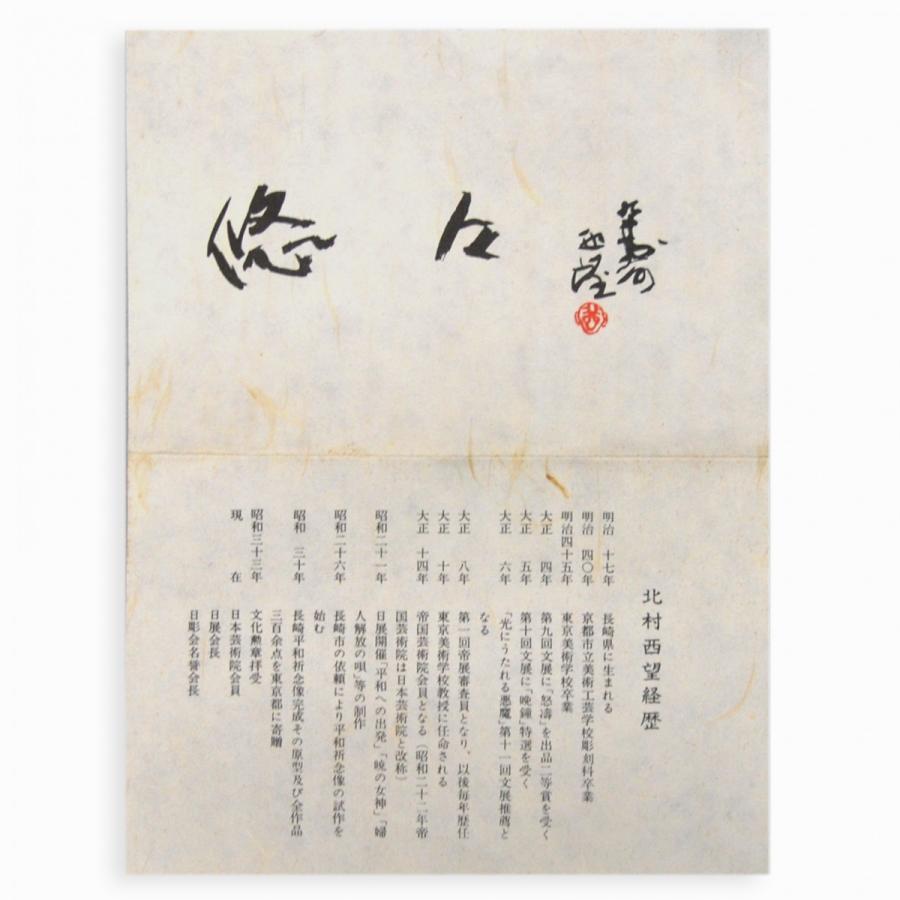 悠々
西望
北村西望経歴
明治 十七年 長崎県に生まれる
明治 四〇年 京都市立美術工芸学校彫刻科卒業
明治四十五年 東京美術学校卒業
大正 四年 第九回文展に「怒濤」を出品二等賞を受く
大正 五年 第十回文展に「晩鐘」特選を受く
大正 六年 「光にうたれる悪魔」第十一回文展推薦と
なる
大正 八年 第一回帝展審査員となり、以後毎年歴任
大正 十年 東京美術学校教授に任命される
大正 十四年 帝国芸術院会員となる(昭和二十二年帝
国芸術院は日本芸術院と改称)
昭和二十一年 日展開催「平和への出発」「暁の女神」「婦
人解放の唄」等の制作
昭和二十六年 長崎市の依頼により平和祈念像の試作を
始む
昭和 三十年 長崎平和祈念像完成その原型及び全作品
三百余点を東京都に寄贈
昭和三十三年 文化勲章拝受
現 在 日本芸術院会員
日展会長
日彫会名誉会長